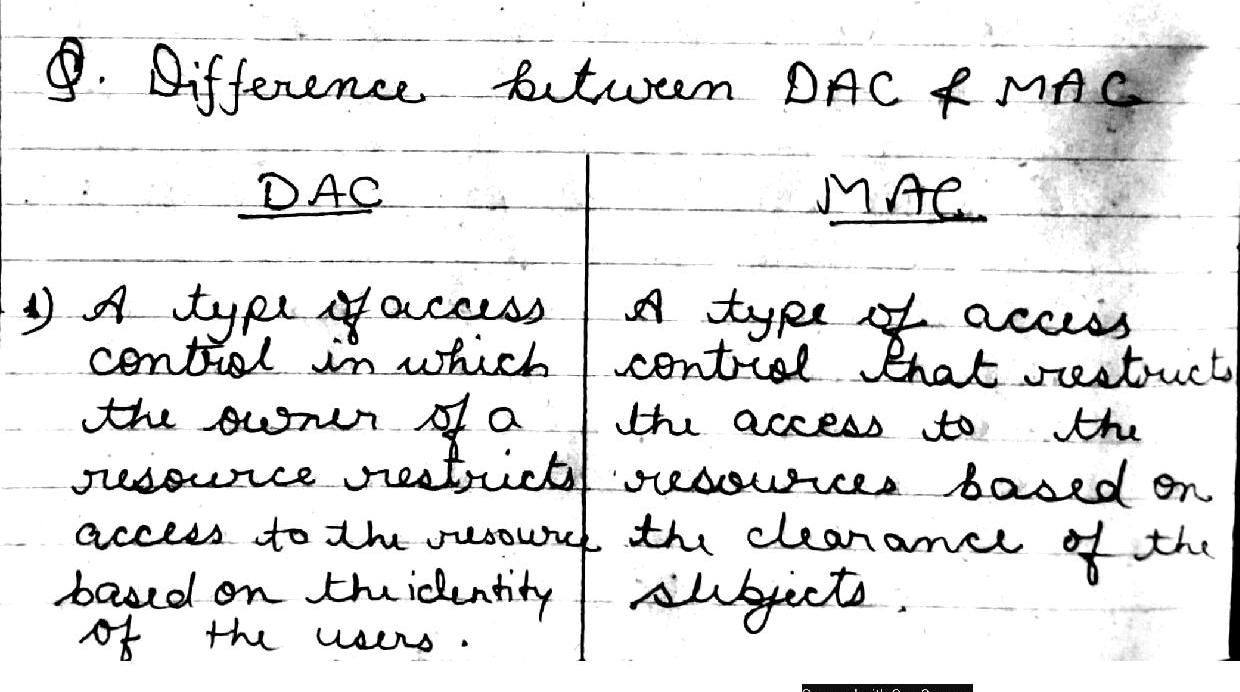 Q. Difference between DAC & MAC
DAC
MAC
1) A type of access
control in which
the owner of a
resource restricts
access to the resource
based on the identity
of the users.
A type of access
control that restricts
the access to the
resources based on
the clearance of the
subjects.